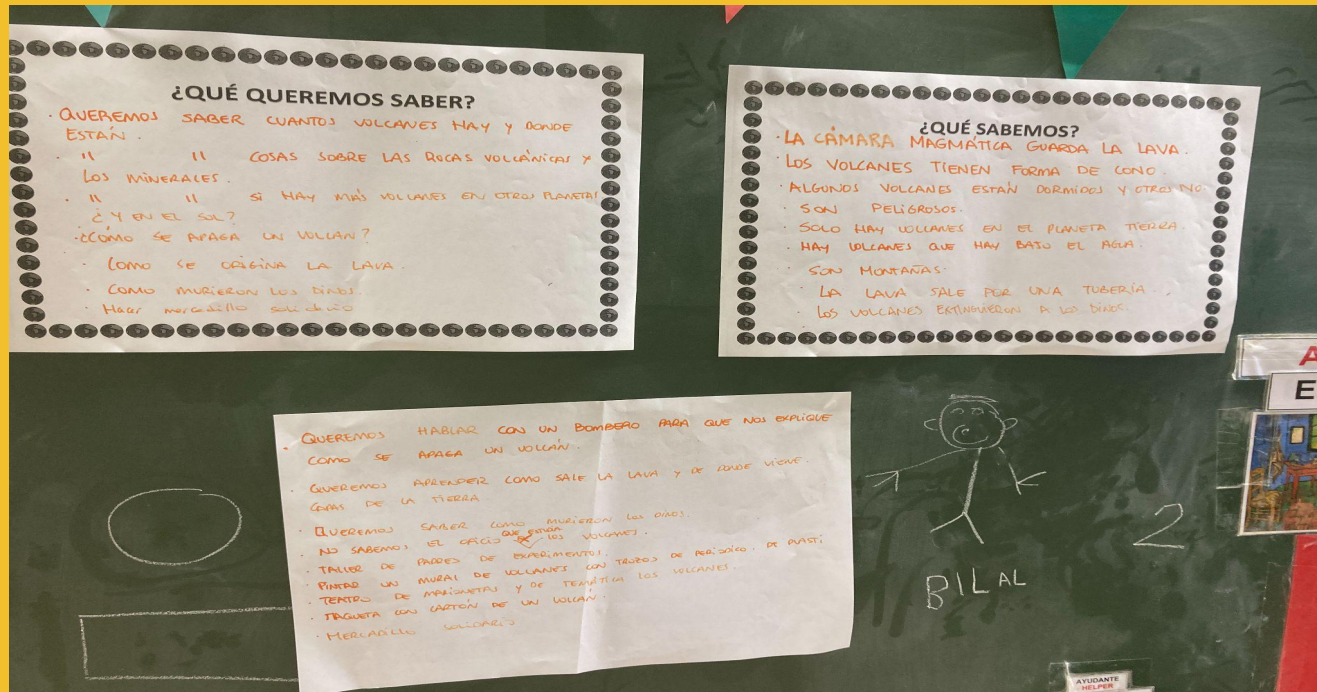 ¿QUÉ QUEREMOS SABER?
· QUEREMOS SABER CUANTOS VOLCANES HAY Y DONDE
ESTÁN.
· " " COSAS SOBRE LAS ROCAS VOLCÁNICAS Y
LOS MINERALES.
· " " SI HAY MÁS VOLCANES EN OTROS PLANETAS
¿Y EN EL SOL?
· ¿CÓMO SE APAGA UN VOLCAN?
· COMO SE ORIGINA LA LAVA.
· COMO MURIERON LOS DINOS.
· Hacer mercadillo solidario
¿QUÉ SABEMOS?
· LA CÁMARA MAGMÁTICA GUARDA LA LAVA.
LOS VOLCANES TIENEN FORMA DE CONO.
· ALGUNOS VOLCANES ESTÁN DORMIDOS Y OTROS NO
· SON PELIGROSOS.
· SOLO HAY VOLCANES EN EL PLANETA TIERRA.
· HAY VOLCANES QUE HAY BAJO EL AGUA.
· SON MONTAÑAS.
· LA LAVA SALE POR UNA TUBERÍA.
· LOS VOLCANES EXTINGUIERON A LOS DINOS.
· QUEREMOS HABLAR CON UN BOMBERO PARA QUE NOS EXPLIQUE
COMO SE APAGA UN VOLCÁN.
· QUEREMOS APRENDER COMO SALE LA LAVA Y DE DONDE VIENE.
CAPAS DE LA TIERRA
· QUEREMOS SABER COMO MURIERON LOS DINOS.
· NO SABEMOS EL OFICIO QUE LOS VOLCANES.
· TALLER DE PADRES DE EXPERIMENTOS.
· PINTAR UN MURAL DE VOLCANES CON TROZOS DE PERIÓDICO, DE PLASTI
· TEATRO DE MARIONETAS Y DE TEMÁTICA LOS VOLCANES.
· MAQUETA CON CARTÓN DE UN VOLCÁN.
· MERCADILLO SOLIDARIO
2
BILAL
A
E
AYUDANTE
HELPER